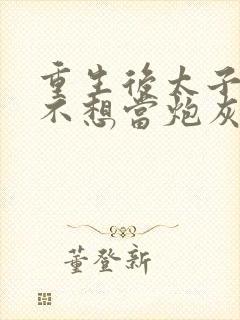 重生後太子
不想當炮灰
董登新